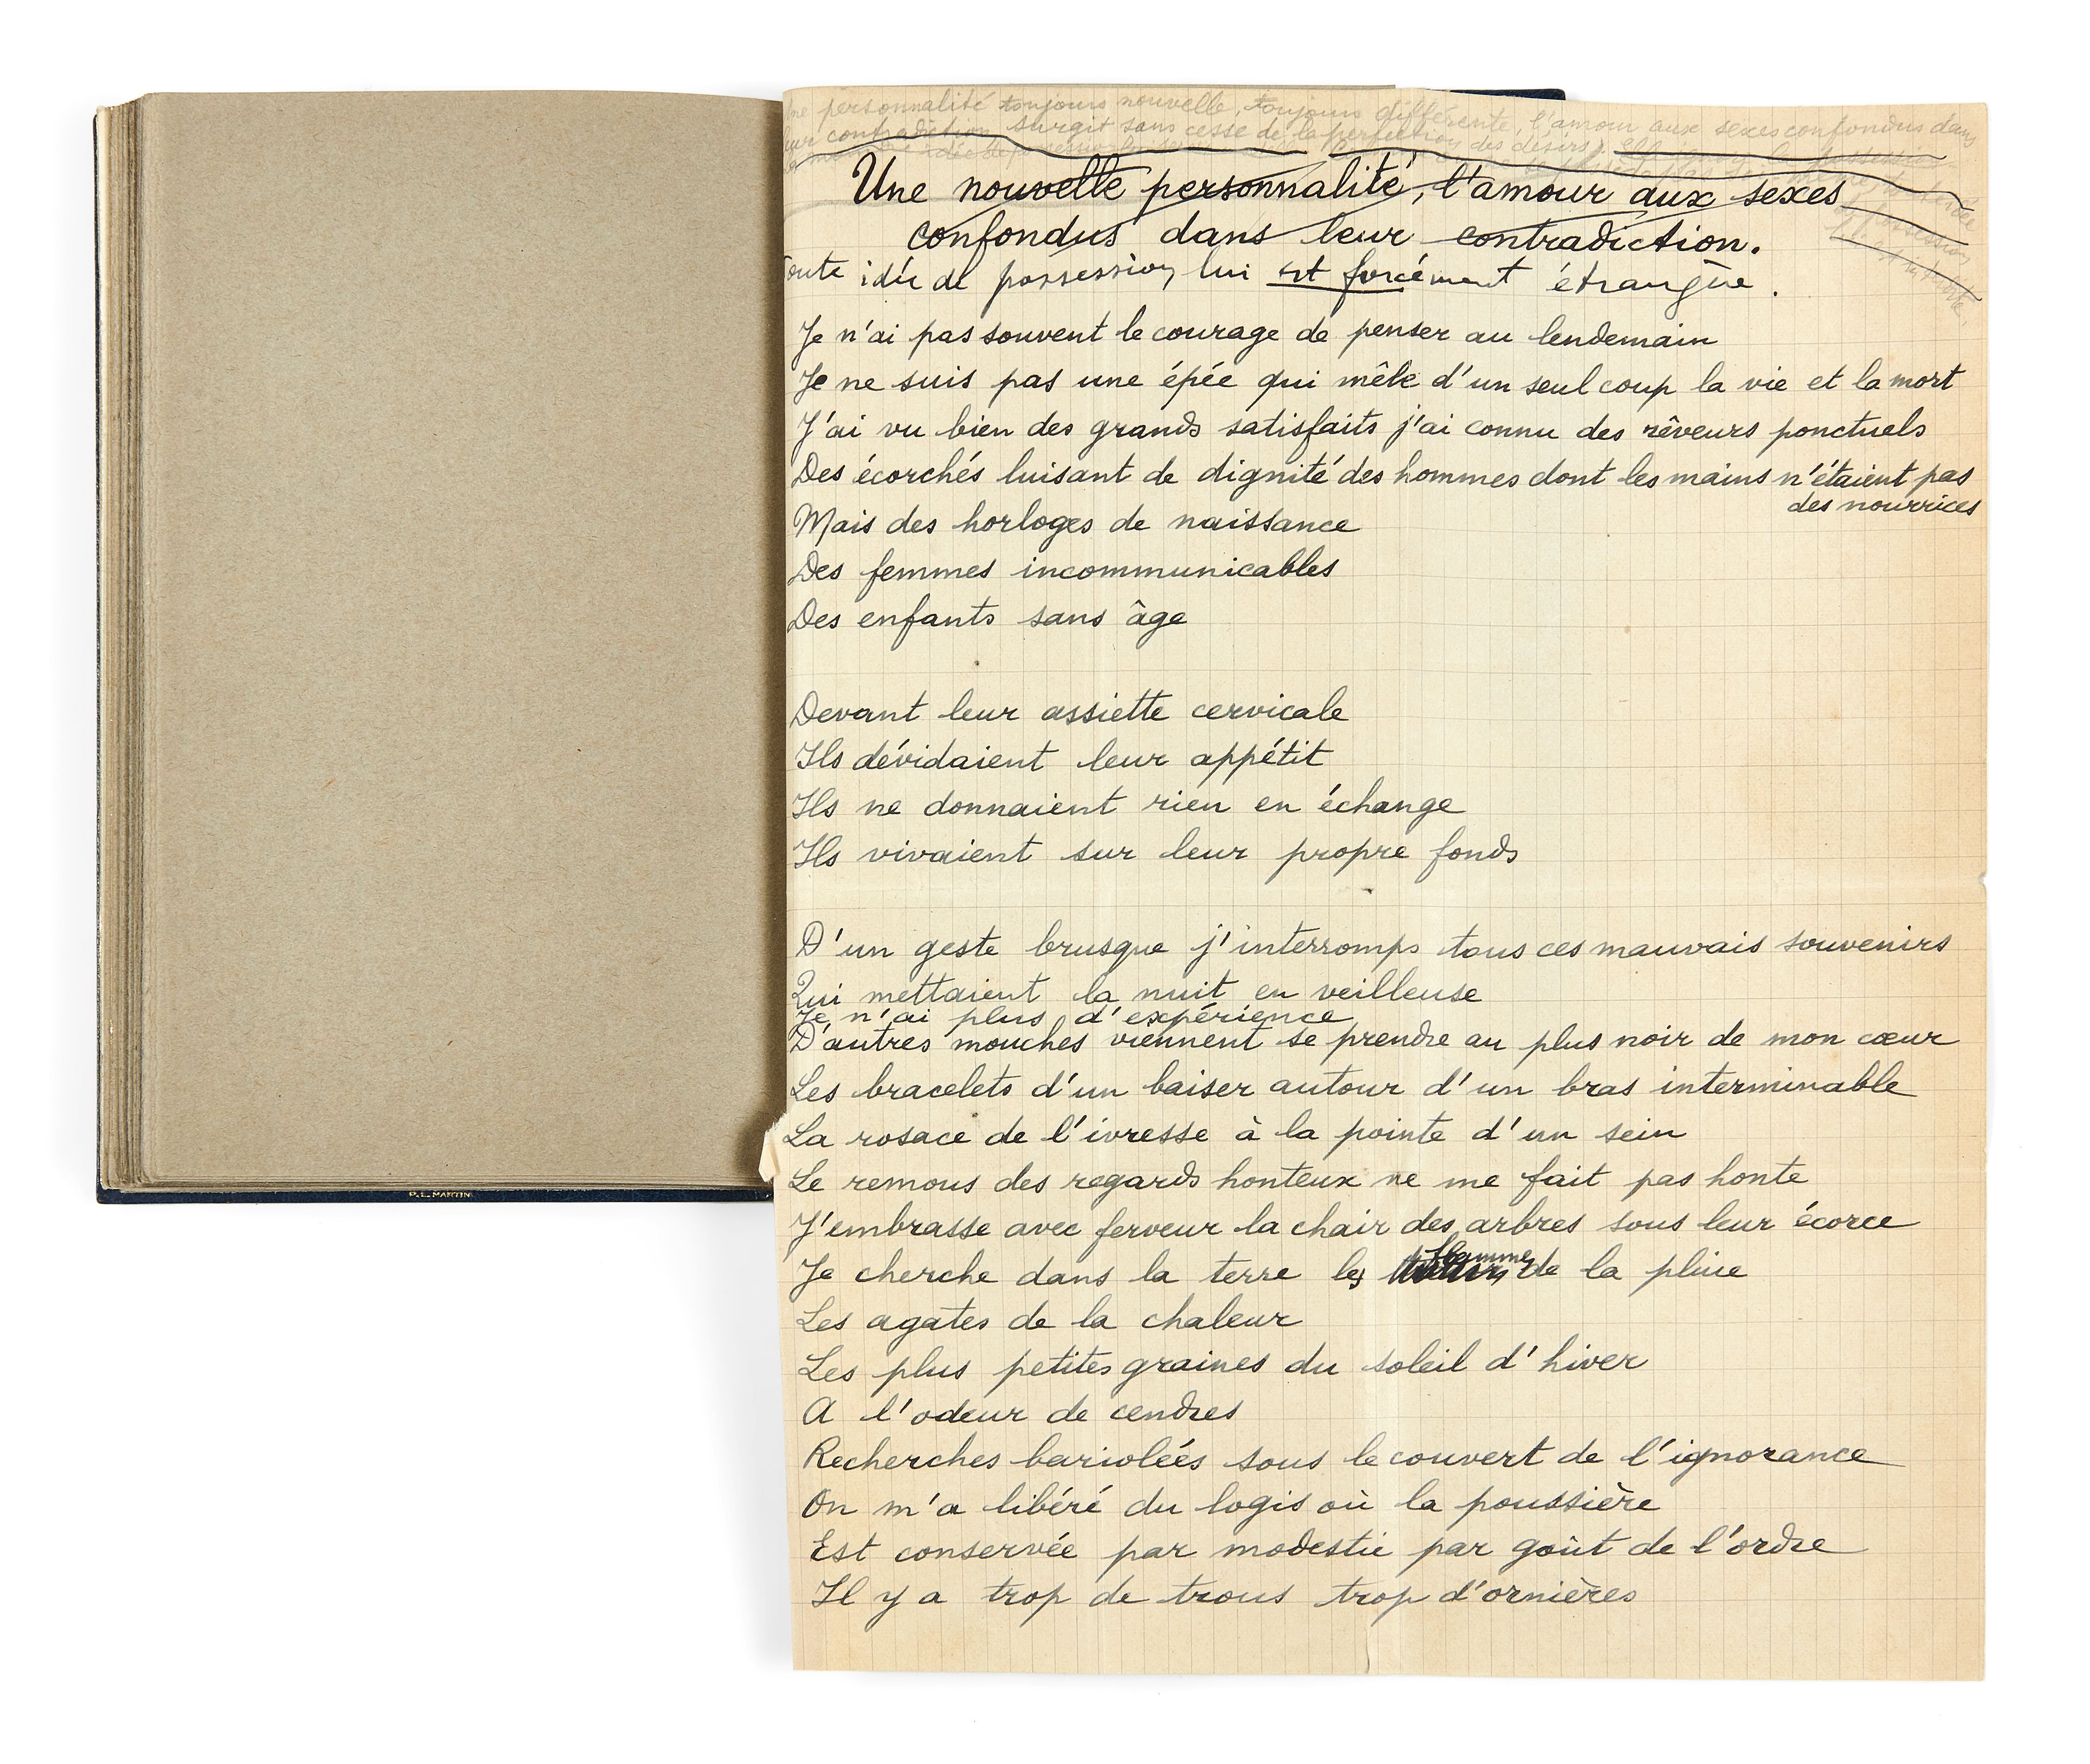 Une personnalité toujours nouvelle, toujours différente, l'amour aux sexes confondus dans
leur contradiction, surgit sans cesse de la perfection des désirs.
Une nouvelle personnalité, l'amour aux sexes
confondus dans leur contradiction.
Toute idée de possession lui est forcément étrangère.
Je n'ai pas souvent le courage de penser au lendemain
Je ne suis pas une épée qui mêle d'un seul coup la vie et la mort
J'ai vu bien des grands satisfaits j'ai connu des rêveurs ponctuels
Des écorchés luisant de dignité des hommes dont les mains n'étaient pas
des nourrices
Mais des horloges de naissance
Des femmes incommunicables
Des enfants sans âge
Devant leur assiette cervicale
Ils dévidaient leur appétit
Ils ne donnaient rien en échange
Ils vivaient sur leur propre fonds
D'un geste brusque j'interromps tous ces mauvais souvenirs
Qui mettaient la nuit en veilleuse
Je n'ai plus d'expérience
D'autres mouches viennent se prendre au plus noir de mon cœur
Les bracelets d'un baiser autour d'un bras interminable
La rosace de l'ivresse à la pointe d'un sein
Le remous des regards honteux ne me fait pas honte
J'embrasse avec ferveur la chair des arbres sous leur écorce
Je cherche dans la terre les flammes de la pluie
Les agates de la chaleur
Les plus petites graines du soleil d'hiver
A l'odeur de cendres
Recherches bariolées sous le couvert de l'ignorance
On m'a libéré du logis où la poussière
Est conservée par modestie par goût de l'ordre
Il y a trop de trous trop d'ornières
P.L. MARTIN